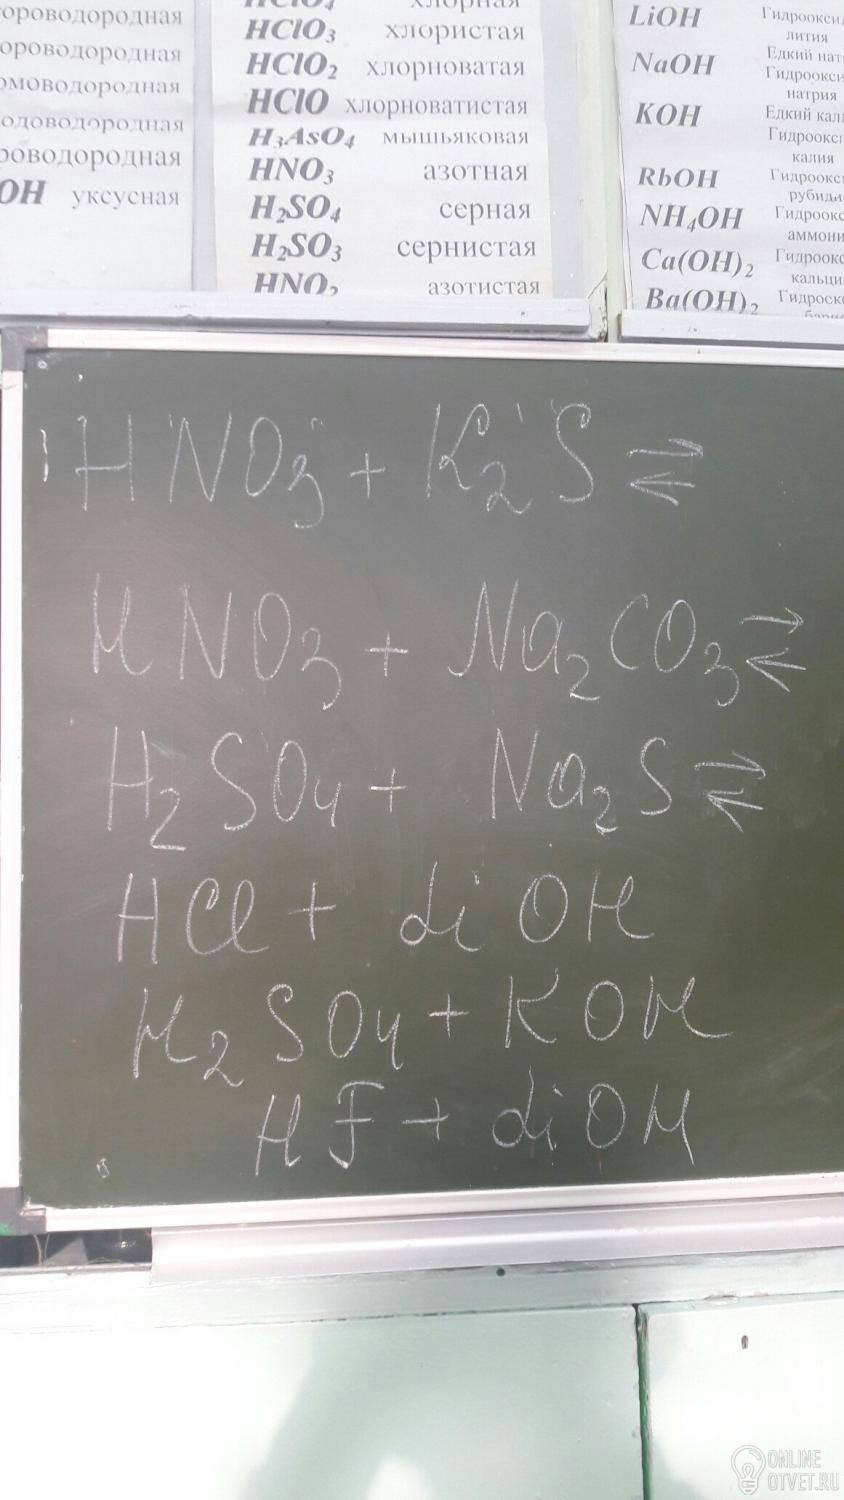 ороводородная
ороводородная
омоводородная
одоводородная
роводородная
ОН уксусная
HClO₄ хлорная
HClO₃ хлористая
HClO₂ хлорноватая
HClO хлорноватистая
H₃AsO₄ мышьяковая
HNO₃ азотная
H₂SO₄ серная
H₂SO₃ сернистая
HNO₂ азотистая
LiOH Гидроокси
лития
NaOH Едкий нат
Гидроокси
натрия
KOH Едкий кал
Гидроокс
калия
RbOH Гидроокс
рубиди
NH₄OH Гидроокс
аммони
Ca(OH)₂ Гидроокс
кальци
Ba(OH)₂ Гидроск
бари
HNO₃ + K₂S ⇄
HNO₃ + Na₂CO₃ ⇄
H₂SO₄ + Na₂S ⇄
HCl + LiOH
H₂SO₄ + KOH
HF + LiOH
ONLINE
OTVET.RU